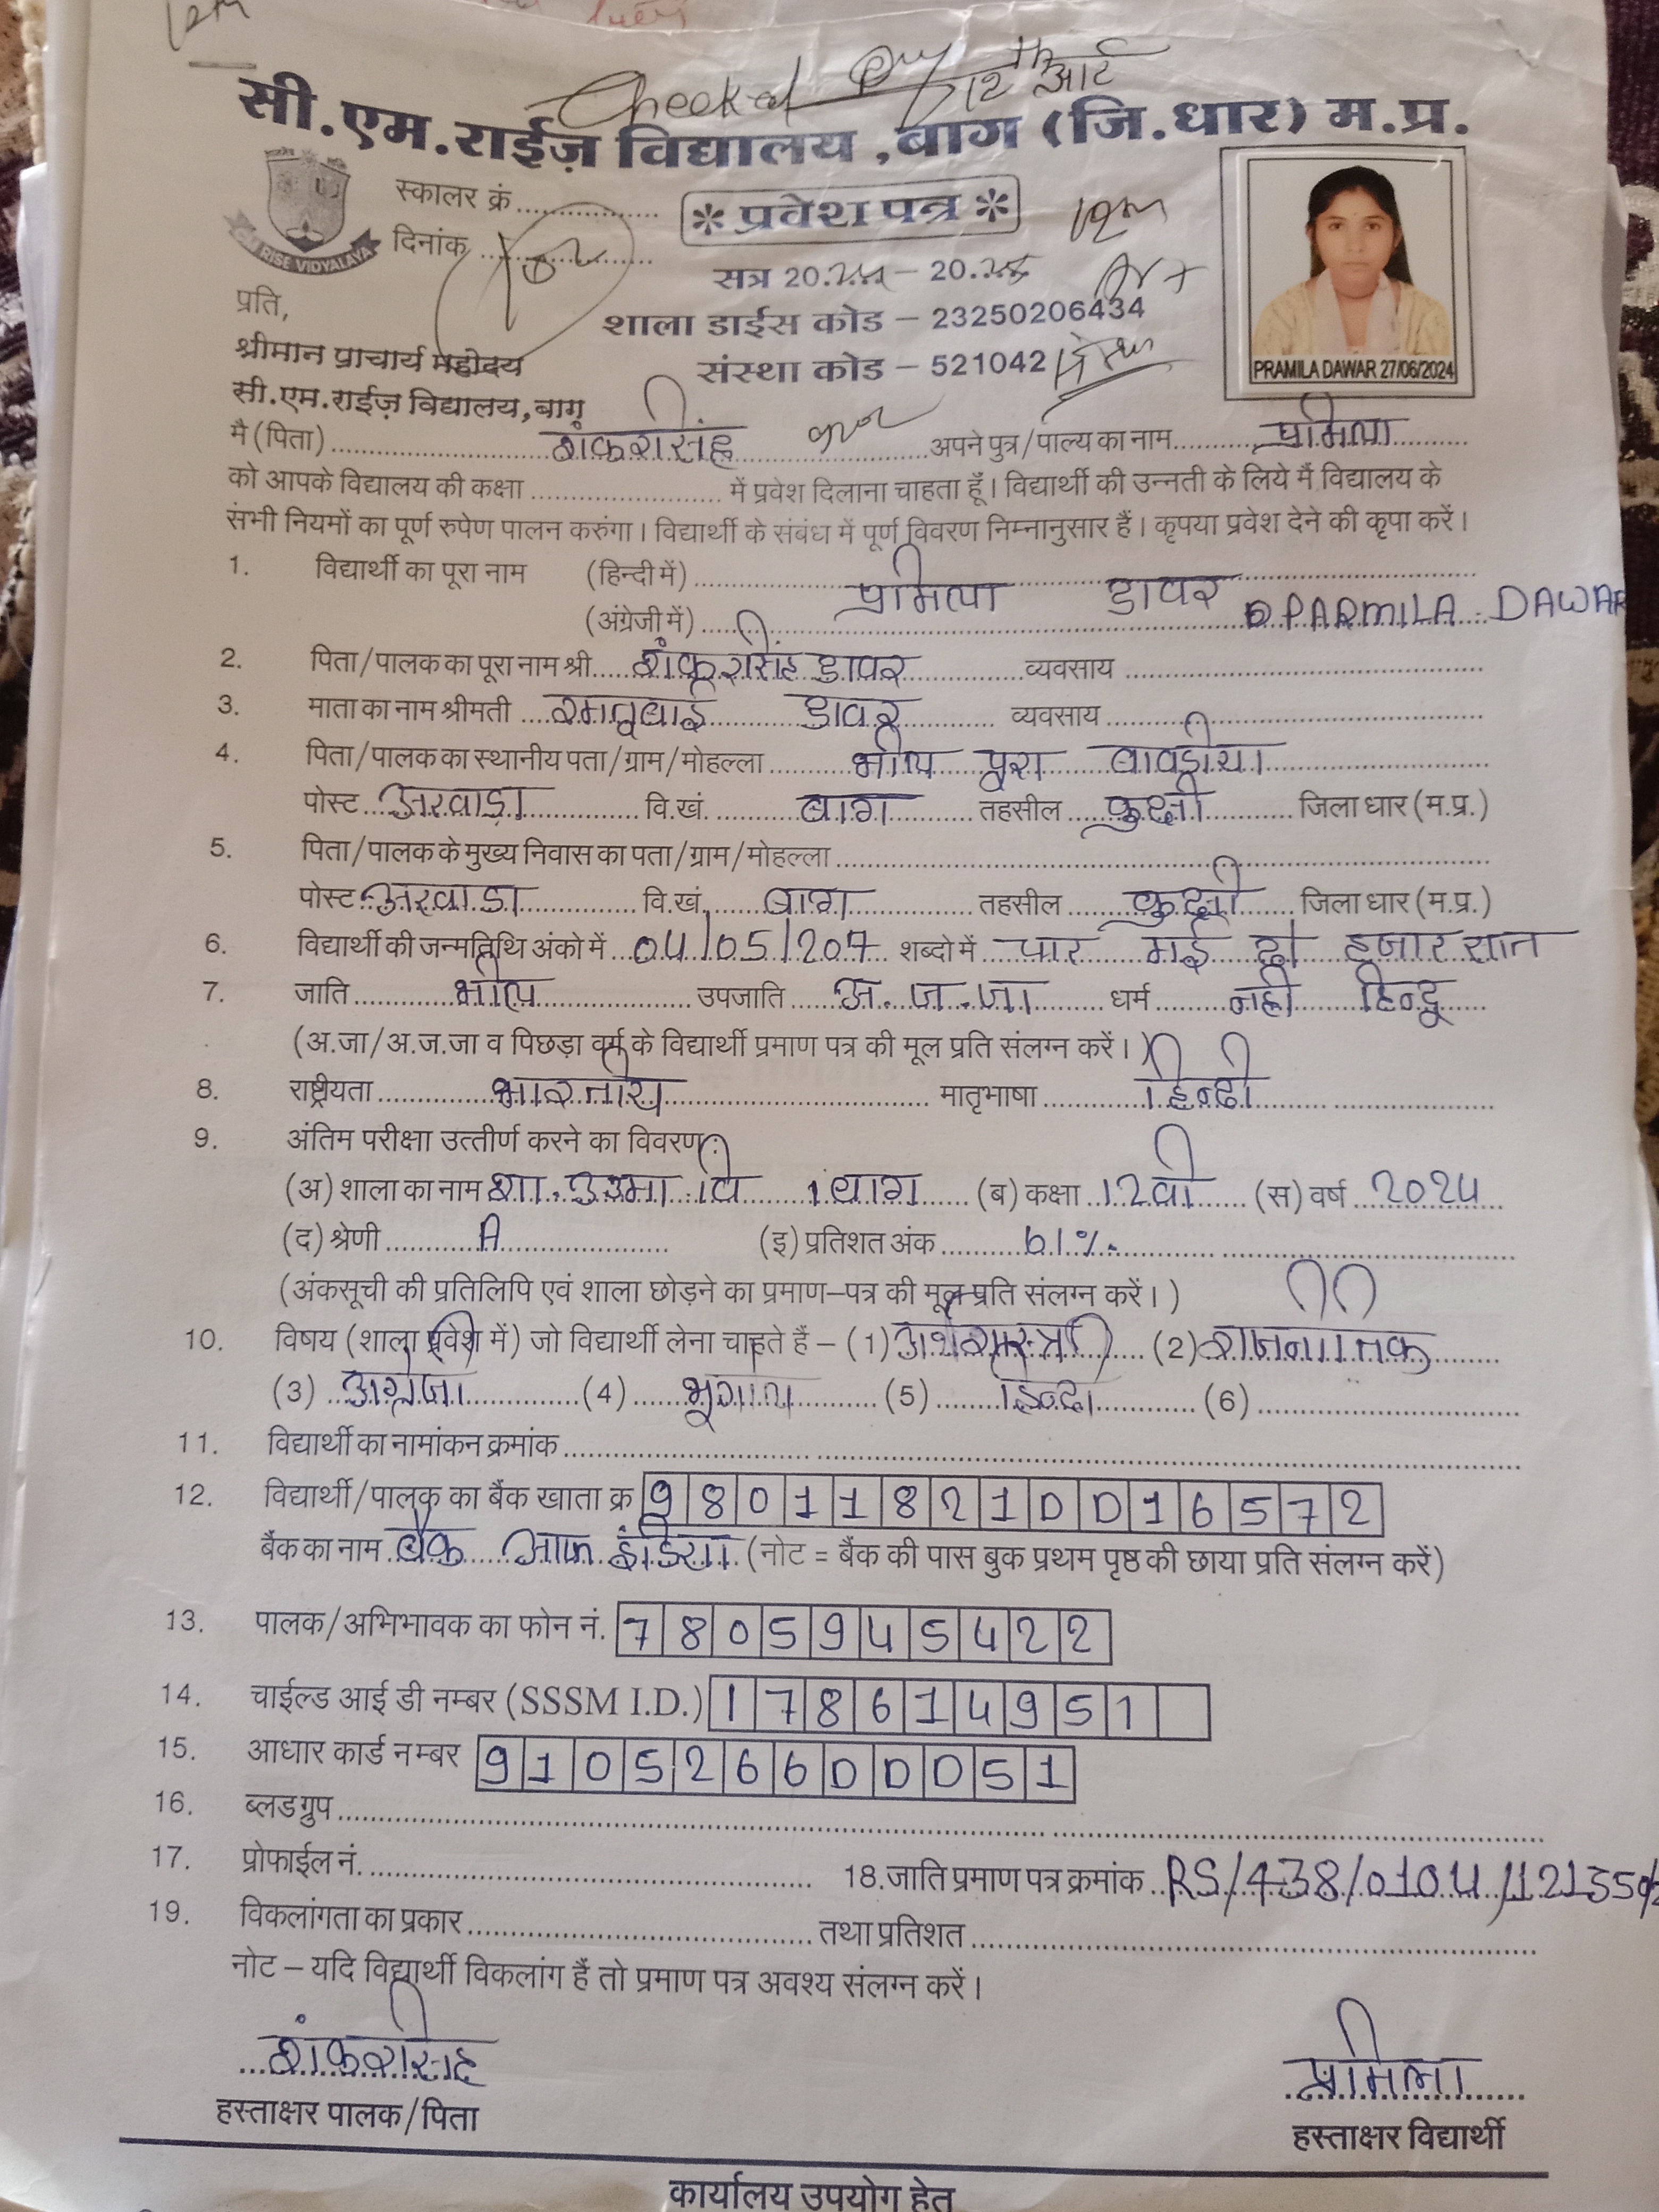 12th
Checked 12th आर्ट
सी.एम.राईज़ विद्यालय ,बाग (जि.धार) म.प्र.
स्कालर क्रं
* प्रवेश पत्र *
12th
दिनांक
RISE VIDYALAYA
सत्र 20.24 – 20.25 Art
प्रति,
शाला डाईस कोड – 23250206434
श्रीमान प्राचार्य महोदय
संस्था कोड – 521042
PRAMILA DAWAR 27/06/2024
सी.एम.राईज़ विद्यालय, बाग
मै (पिता) शंकरसिंह अपने पुत्र/पाल्य का नाम प्रमिला
को आपके विद्यालय की कक्षा में प्रवेश दिलाना चाहता हूँ। विद्यार्थी की उन्नती के लिये मैं विद्यालय के
सभी नियमों का पूर्ण रुपेण पालन करुंगा। विद्यार्थी के संबंध में पूर्ण विवरण निम्नानुसार हैं। कृपया प्रवेश देने की कृपा करें।
1. विद्यार्थी का पूरा नाम (हिन्दी में) प्रमिला डावर
(अंग्रेजी में) PARMILA DAWAR
2. पिता/पालक का पूरा नाम श्री शंकरसिंह डावर व्यवसाय
3. माता का नाम श्रीमती डावर व्यवसाय
4. पिता/पालक का स्थानीय पता/ग्राम/मोहल्ला भील पुरा बावड़ीया
पोस्ट अखाड़ा वि.खं. बाग तहसील कुक्षी जिला धार (म.प्र.)
5. पिता/पालक के मुख्य निवास का पता/ग्राम/मोहल्ला
पोस्ट अखाडा वि.खं. बाग तहसील कुक्षी जिला धार (म.प्र.)
6. विद्यार्थी की जन्मतिथि अंको में 04/05/207 शब्दो में चार मई दो हजार सात
7. जाति भील उपजाति अ.ज.जा धर्म नही हिन्दू
(अ.जा/अ.ज.जा व पिछड़ा वर्ग के विद्यार्थी प्रमाण पत्र की मूल प्रति संलग्न करें।)
8. राष्ट्रीयता भारतीय मातृभाषा हिन्दी
9. अंतिम परीक्षा उत्तीर्ण करने का विवरण:
(अ) शाला का नाम शा. उ.मा.वि बाग (ब) कक्षा 12वी (स) वर्ष 2024
(द) श्रेणी A (इ) प्रतिशत अंक 61%
(अंकसूची की प्रतिलिपि एवं शाला छोड़ने का प्रमाण–पत्र की मूल प्रति संलग्न करें।)
10. विषय (शाला प्रवेश में) जो विद्यार्थी लेना चाहते हैं – (1) अर्थशास्त्र (2) राजनीतिक
(3) अंग्रेजी (4) भूगोल (5) हिन्दी (6)
11. विद्यार्थी का नामांकन क्रमांक
12. विद्यार्थी/पालक का बैंक खाता क्र 980118210016572
बैंक का नाम बैंक आफ इंडिया (नोट = बैंक की पास बुक प्रथम पृष्ठ की छाया प्रति संलग्न करें)
13. पालक/अभिभावक का फोन नं. 7805945422
14. चाईल्ड आई डी नम्बर (SSSM I.D.) 178614951
15. आधार कार्ड नम्बर 910526600051
16. ब्लड ग्रुप
17. प्रोफाईल नं. 18.जाति प्रमाण पत्र क्रमांक RS/438/0104/12135
19. विकलांगता का प्रकार तथा प्रतिशत
नोट – यदि विद्यार्थी विकलांग हैं तो प्रमाण पत्र अवश्य संलग्न करें।
शंकरसिंह प्रमिला
हस्ताक्षर पालक/पिता हस्ताक्षर विद्यार्थी
कार्यालय उपयोग हेतु